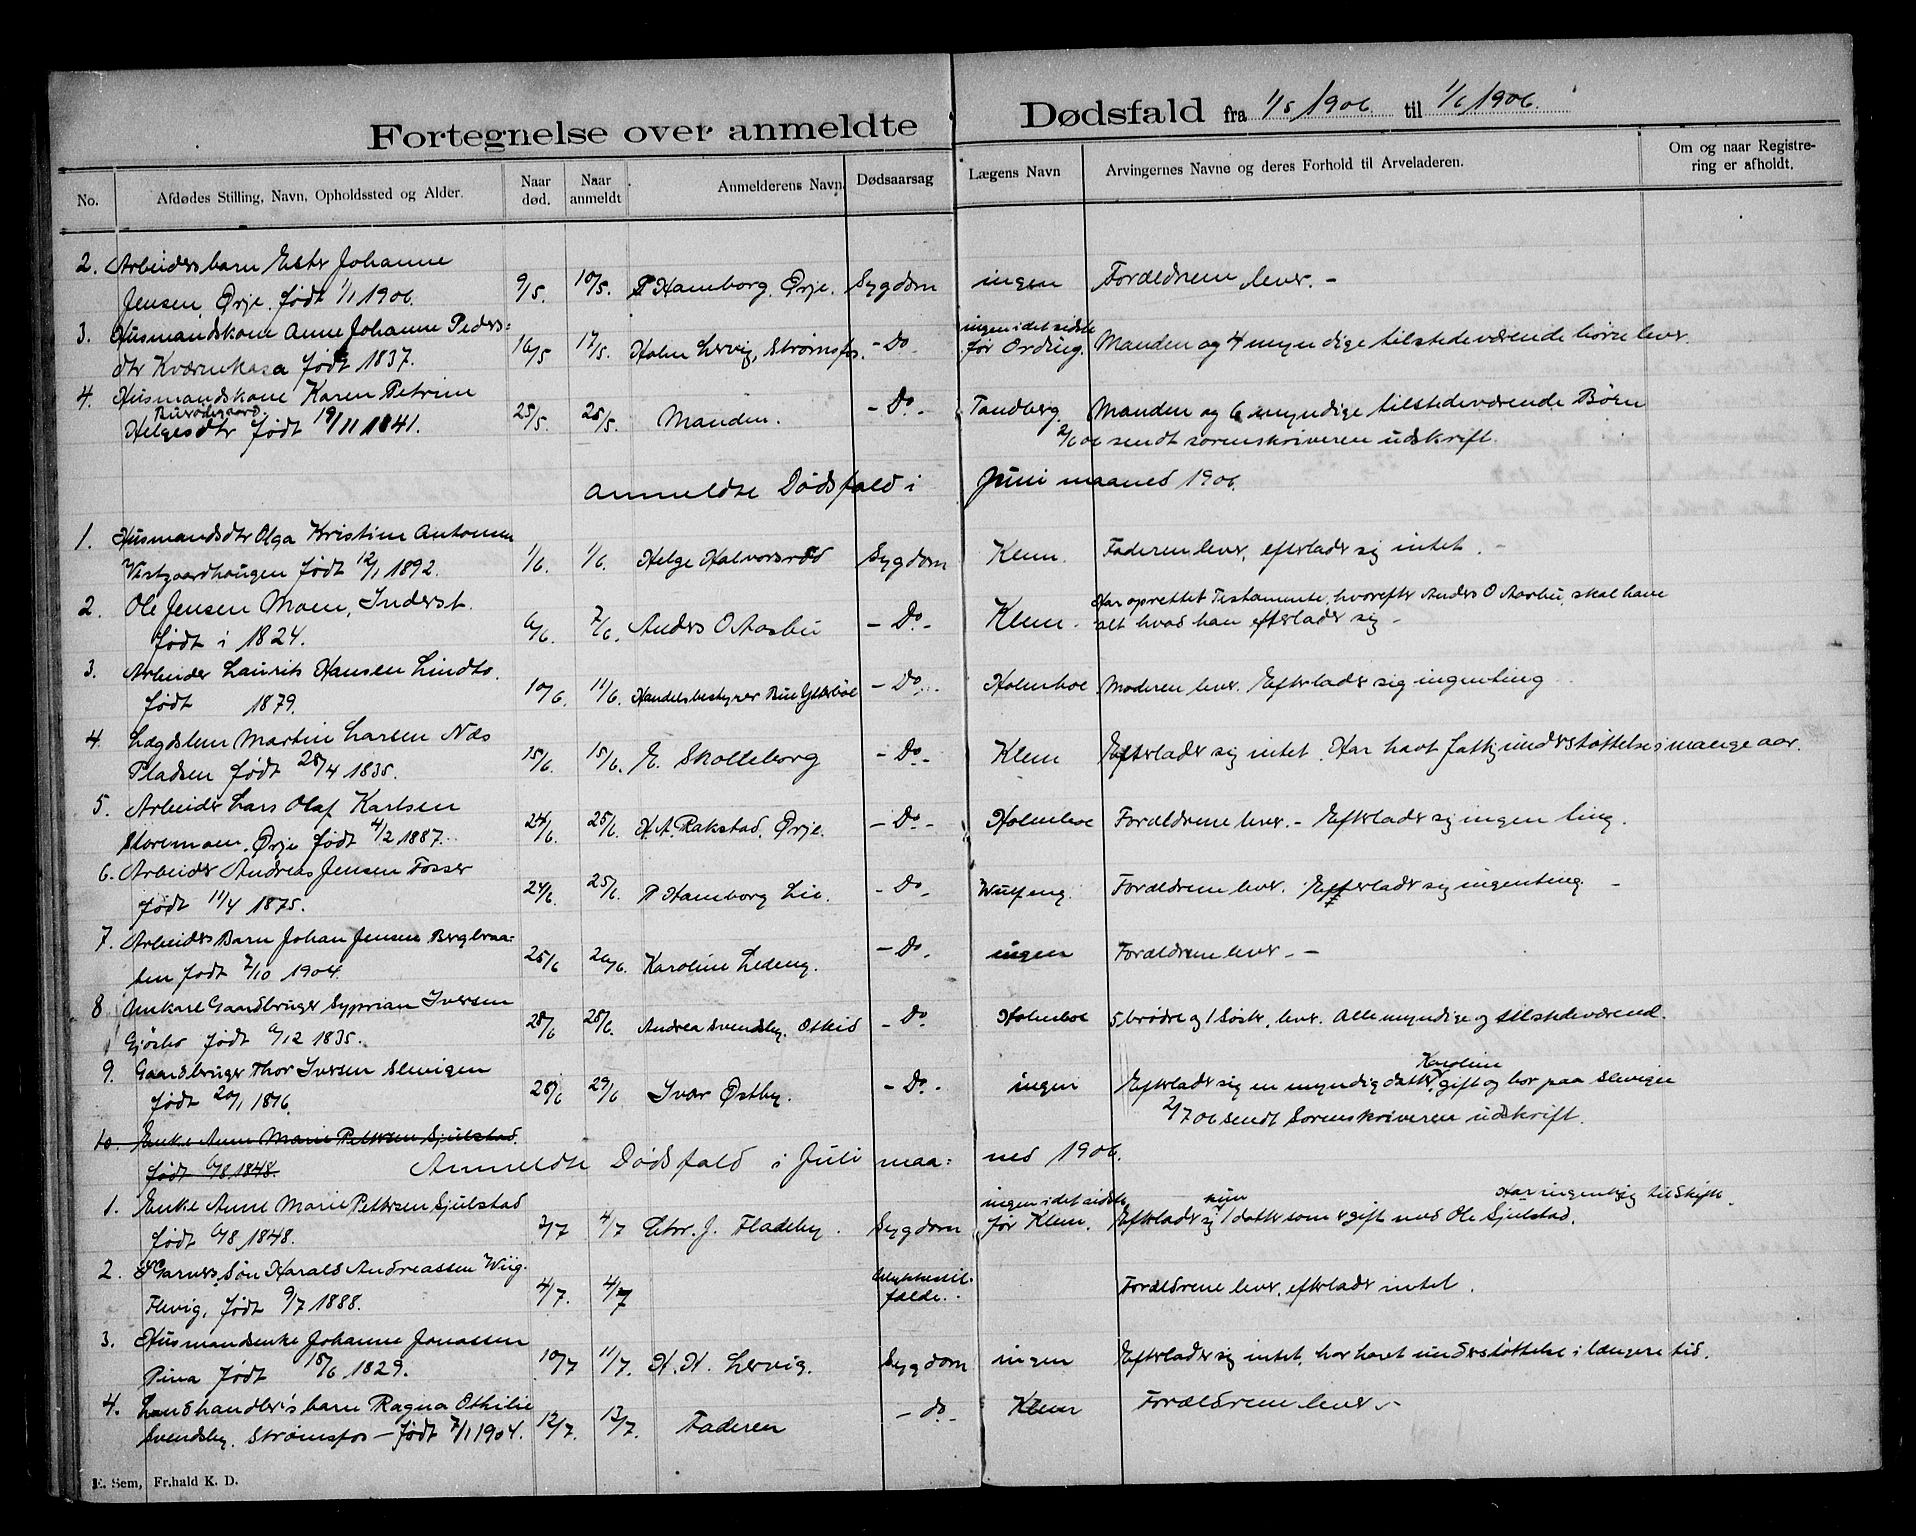 Fortegnelse over anmeldte Dødsfald fra 1/5 1906 til 1/6 1906.
No. Afdødes Stilling, Navn, Opholdssted og Alder. Naar død. Naar anmeldt Anmelderens Navn Dødsaarsag Lægens Navn Arvingernes Navne og deres Forhold til Arveladeren. Om og naar Registrering er afholdt.
2. Arbeidersbarn Ester Johanne
Jensen, Ørje, født 1/1 1906. 9/5. 10/5. P Hamborg, Ørje. Sygdom ingen Forældrene lever. -
3. Husmandskone Anne Johanne Peders= ingen i det sidste
dtr Kværnekasa født 1837. 16/5 17/5. Holm Lervig, Strømsfos. - Do - før Ording. Manden og 4 myndige tilstedeværende børn lever.
4. Husmandskone Karen Petrine
Burødegaard.
Helgesdtr født 19/11 1841. 25/5. 25/5. Manden. - Do - Tandberg. Manden og 6 myndige tilstedeværende Børn
2/6 06 sendt sorenskriveren udskrift.
Anmeldte Dødsfald i Juni maaned 1906.
1. Husmandsdtr Olga Kristine Antonsen
Vestgaardhaugen født 12/1 1892. 1/6. 1/6. Helge Halvorsrød Sygdom Klem. Faderen lever, efterlader sig intet. -
2. Ole Jensen Moen, Inderst. Har oprettet Testamente, hvorefter Anders O Aasbu, skal have
født i 1824. 6/6. 7/6. Anders O Aasbu - Do - Klem. alt hvad han efterlader sig -
3. Arbeider Laurits Hansen Lindto.
født 1879. 10/6. 11/6. Handelsbestyrer Bue Ytterbøl - Do - Holmboe Moderen lever. Efterlader sig ingenting
4. Lægdslem Martin Larsen Næs
Pladsen født 28/4 1835. 15/6. 15/6. E. Skolleborg - Do - Klem Efterlader sig intet. Har havt fattigunderstøttelse i mange aar.
5. Arbeider Lars Olaf Karlsen
Storemoen, Ørje født 4/2 1887. 24/6. 25/6. H.A. Rakstad, Ørje. - Do - Holmboe Forældrene lever. - Efterlader sig ingen ting.
6. Arbeider Andreas Jensen Fosser
født 11/4 1875. 24/6. 25/6. P Hamborg Lie. - Do - Wulfeng. Forældrene lever. Efterlader sig ingenting. -
7. Arbeiders Barn Johan Jensen Bergbraa=
ten født 2/10 1904. 25/6 26/6. Karoline Ledeng. - Do - ingen Forældrene lever. -
8 Unkarl Gaardbruger Syprian Iversen
Gjøsbo født 6/12 1835. 28/6 28/6. Andrea Svendsby, Otteid - Do - Holmboe 5 brødre og 1 Søster, lever. Alle myndige og tilstedeværend.
9. Gaardbruger Thor Iversen Slevigen Karoline
født 20/1 1816. 28/6 29/6 Ivar Østby. - Do - ingen Efterlader sig en myndig datter, gift og bor paa Slevigen
2/7 06 sendt Sorenskriveren udskrift.
10. Enke Anne Marie Pettersen Sjulstad.
født 6/8 1848.
Anmeldte Dødsfald i Juli maa= ned 1906.
1. Enke Anne Marie Pettersen Sjulstad ingen i det sidste kun Har ingenting til Skifte.
født 6/8 1848. 3/7 4/7 Chr. J. Fladeby. Sygdom før Klem. Efterlader sig 1 datter som er gift med Ole Sjulstad.
2. Garvers Søn Harald Andreassen Wiig.
Flevig, født 9/7 1888. 4/7. 4/7 Ulykkestilfælde. Forældrene lever, efterlader intet.
3. Husmandsenke Johanne Jonassen
Pina født 15/6 1829. 10/7 11/7. H. H. Lervig. Sygdom ingen Efterlader sig intet, har havet understøttelse i længere tid.
4. Landhandler's barn Ragna Othilie
Svendsby, Strømsfos - født 7/1 1904. 12/7. 13/7. Faderen - do - Klem Forældrene lever. -
E. Sem, Fr.hald K. D.